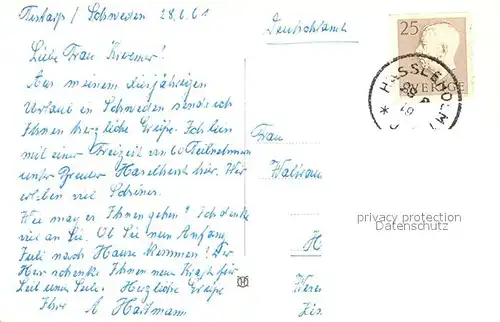 Schweden 28.6.61
Deutschland
25
SVERIGE
HÄSSLEHOLM
Liebe Frau
Aus meinem diesjährigen
Urlaub in Schweden sende ich
Ihnen herzliche Grüße. Ich bin
mit einer Freizeit von 60 Teilnehmern
unter Bruder hier. Wir
erleben viel Schönes.
Wie mag es Ihnen gehen? Ich denke
viel an Sie. Ob Sie nun Anfang
Juli nach Hause kommen? Der
Herr schenke Ihnen neue Kraft für
Leib und Seele. Herzliche Grüße
Ihre A Hartmann
Frau
Waltrau
H
privacy protection
Datenschutz